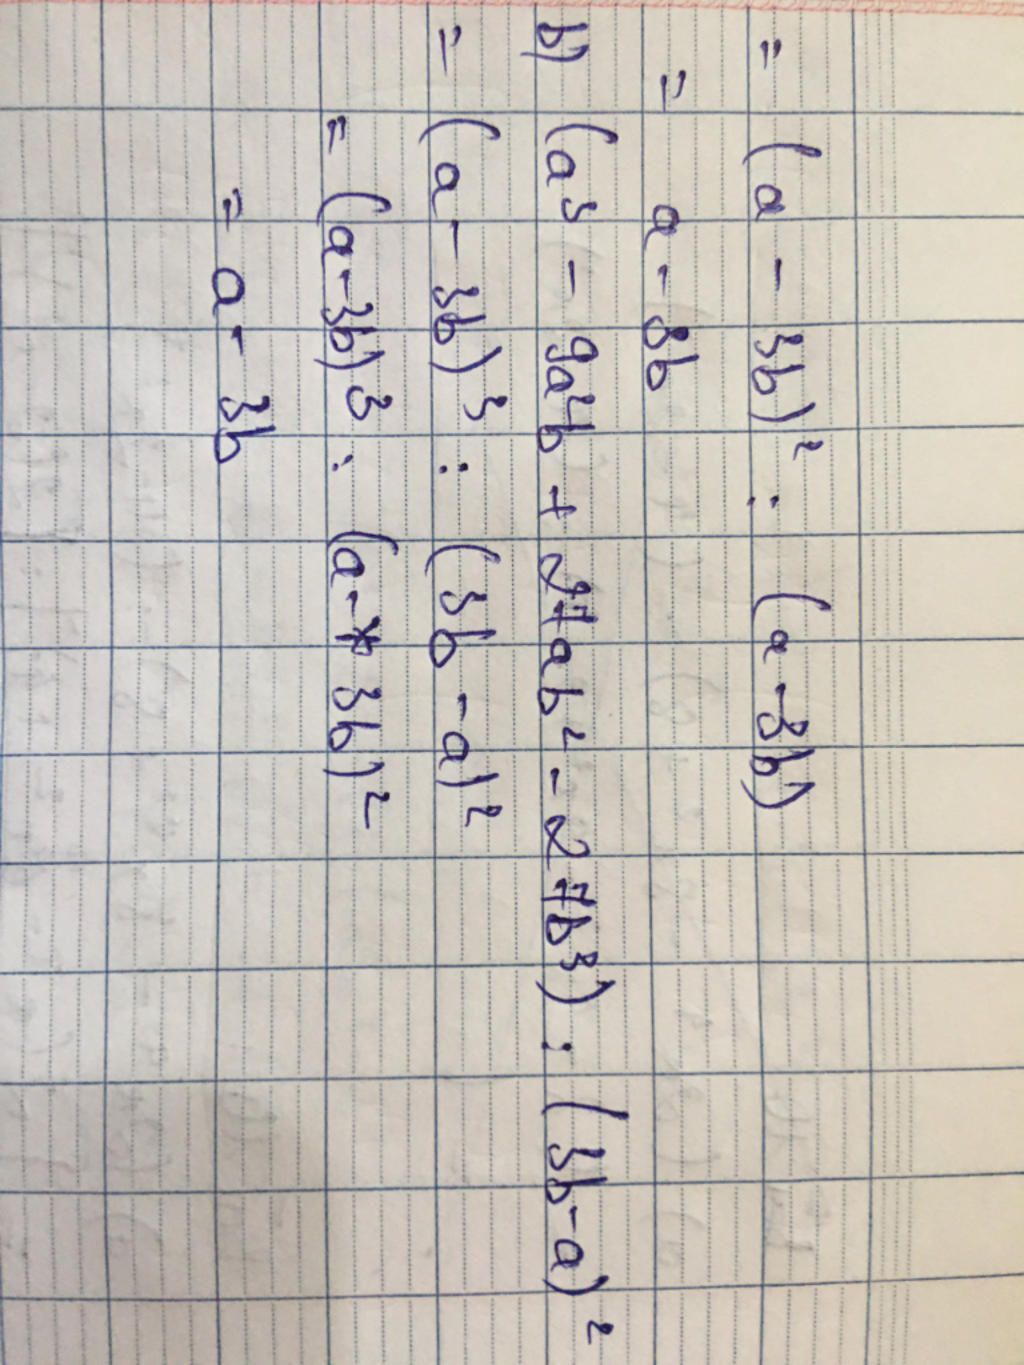 = (a - 3b)² : (a - 3b)
= a - 3b
b) (a³ - 9a²b + 27ab² - 27b³) : (3b - a)²
= (a - 3b)³ : (3b - a)²
= (a - 3b)³ : (a - 3b)²
= a - 3b